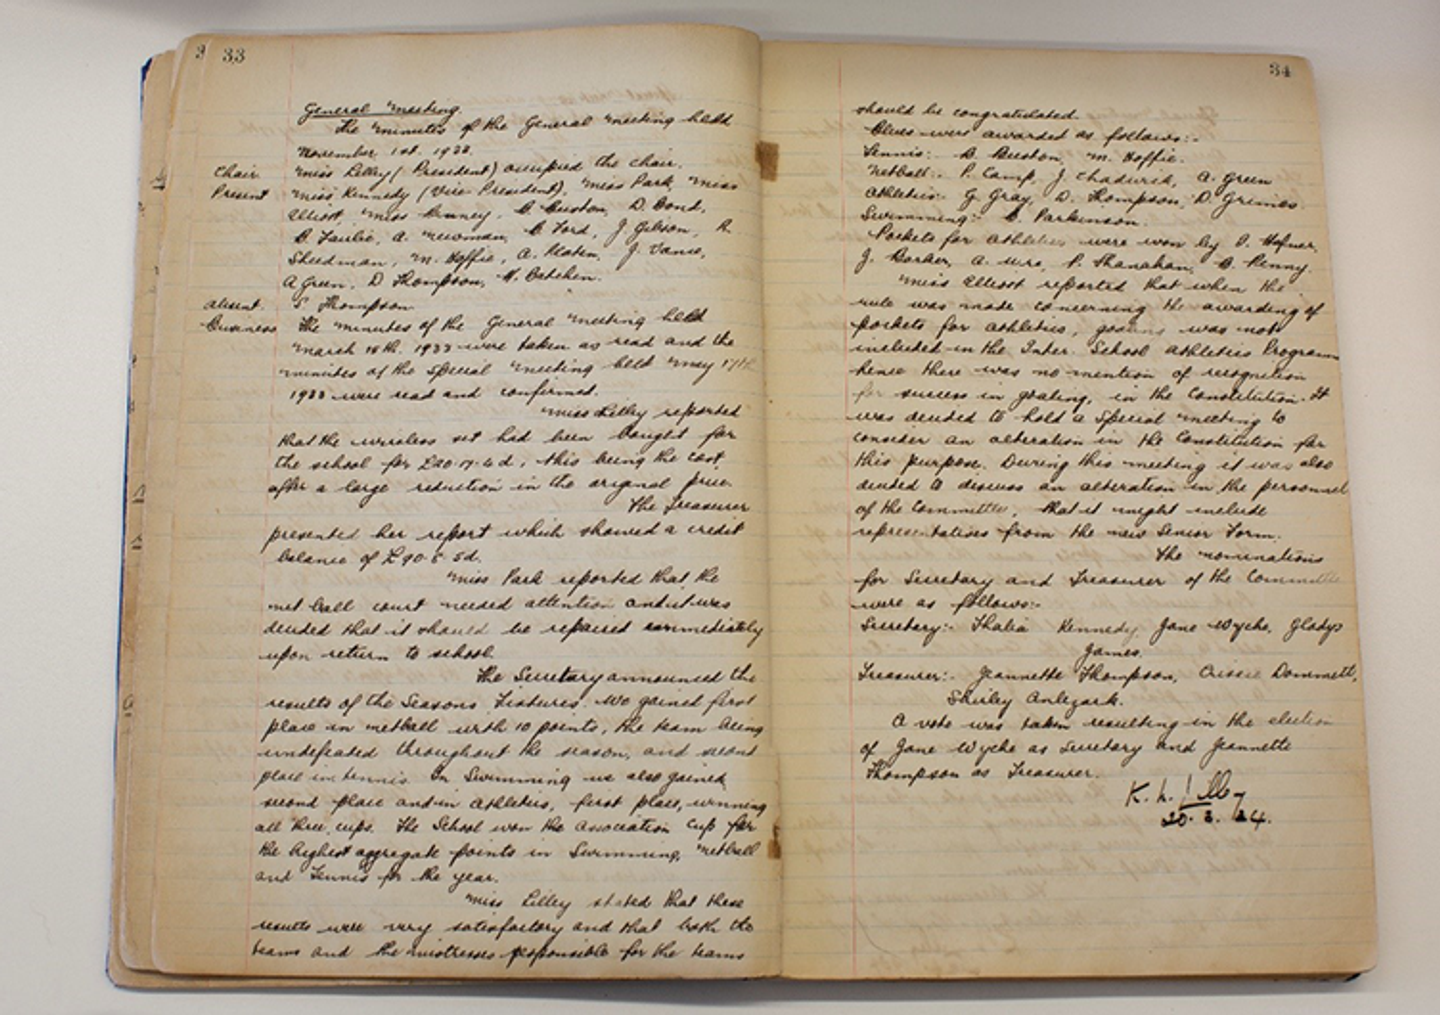 33
General Meeting.
The minutes of the General Meeting held
November 1st. 1933.
Chair. Miss Lilley (President) occupied the chair.
Present Miss Kennedy (Vice President), Miss Park, Miss
Elliott, Miss Kenney, B. Buston, D. Bond,
B. Fairlie, A. Newman, B. Ford, J. Gibson, R.
Steedman, M. Hoffie, A. J. Vance,
A Green, D. Thompson, H.
Absent. S Thompson
Business The minutes of the General Meeting held
March 15th. 1933 were taken as read and the
minutes of the Special Meeting held May 17th
1933 were read and confirmed.
Miss Lilley reported
that the wireless set had been bought for
the school for £20.17.6d, this being the cost
after a large reduction in the original price.
The Treasurer
presented her report which showed a credit
balance of £90. 5d.
Miss Park reported that the
net ball court needed attention and it was
decided that it should be repaired immediately
upon return to school.
The Secretary announced the
results of the Seasons Fixtures. We gained first
place in netball with 10 points, the team being
undefeated throughout the season, and second
place in tennis. In Swimming we also gained
second place and in Athletics, first place, winning
all three cups. The School won the Association Cup for
the highest aggregate points in Swimming, Netball
and Tennis for the year.
Miss Lilley stated that these
results were very satisfactory and that both the
teams and the mistresses responsible for the teams
34
should be congratulated.
Blues were awarded as follows:-
Tennis:- B. Buston, M. Hoffie.
Netball:- P. Camp, J. Chadwick, A. Green
Athletics:- G. Gray, D. Thompson, D. Grimes.
Swimming:- Parkinson.
Pockets for Athletics were won by P. Hafner,
J. Barber, A. P. Shanahan, B. Penny.
Miss Elliott reported that when the
rule was made concerning the awarding of
pockets for Athletics, goaling was not
included in the Inter. School Athletics Programme
hence there was no mention of recognition
for success in goaling, in the Constitution. It
was decided to hold a Special Meeting to
consider an alteration in the Constitution for
this purpose. During this meeting it was also
decided to discuss an alteration in the personnel
of the Committee, that it might include
representatives from the new Senior Form.
The nominations
for Secretary and Treasurer of the Committee
were as follows:-
Secretary:- Thalia Kennedy, Jane Wyche, Gladys
James.
Treasurer:- Jeannette Thompson, Crissie Dommett,
Shirley Anlezark.
A vote was taken resulting in the election
of Jane Wyche as Secretary and Jeannette
Thompson as Treasurer.
K. L. Lilley
20. 3. 34.